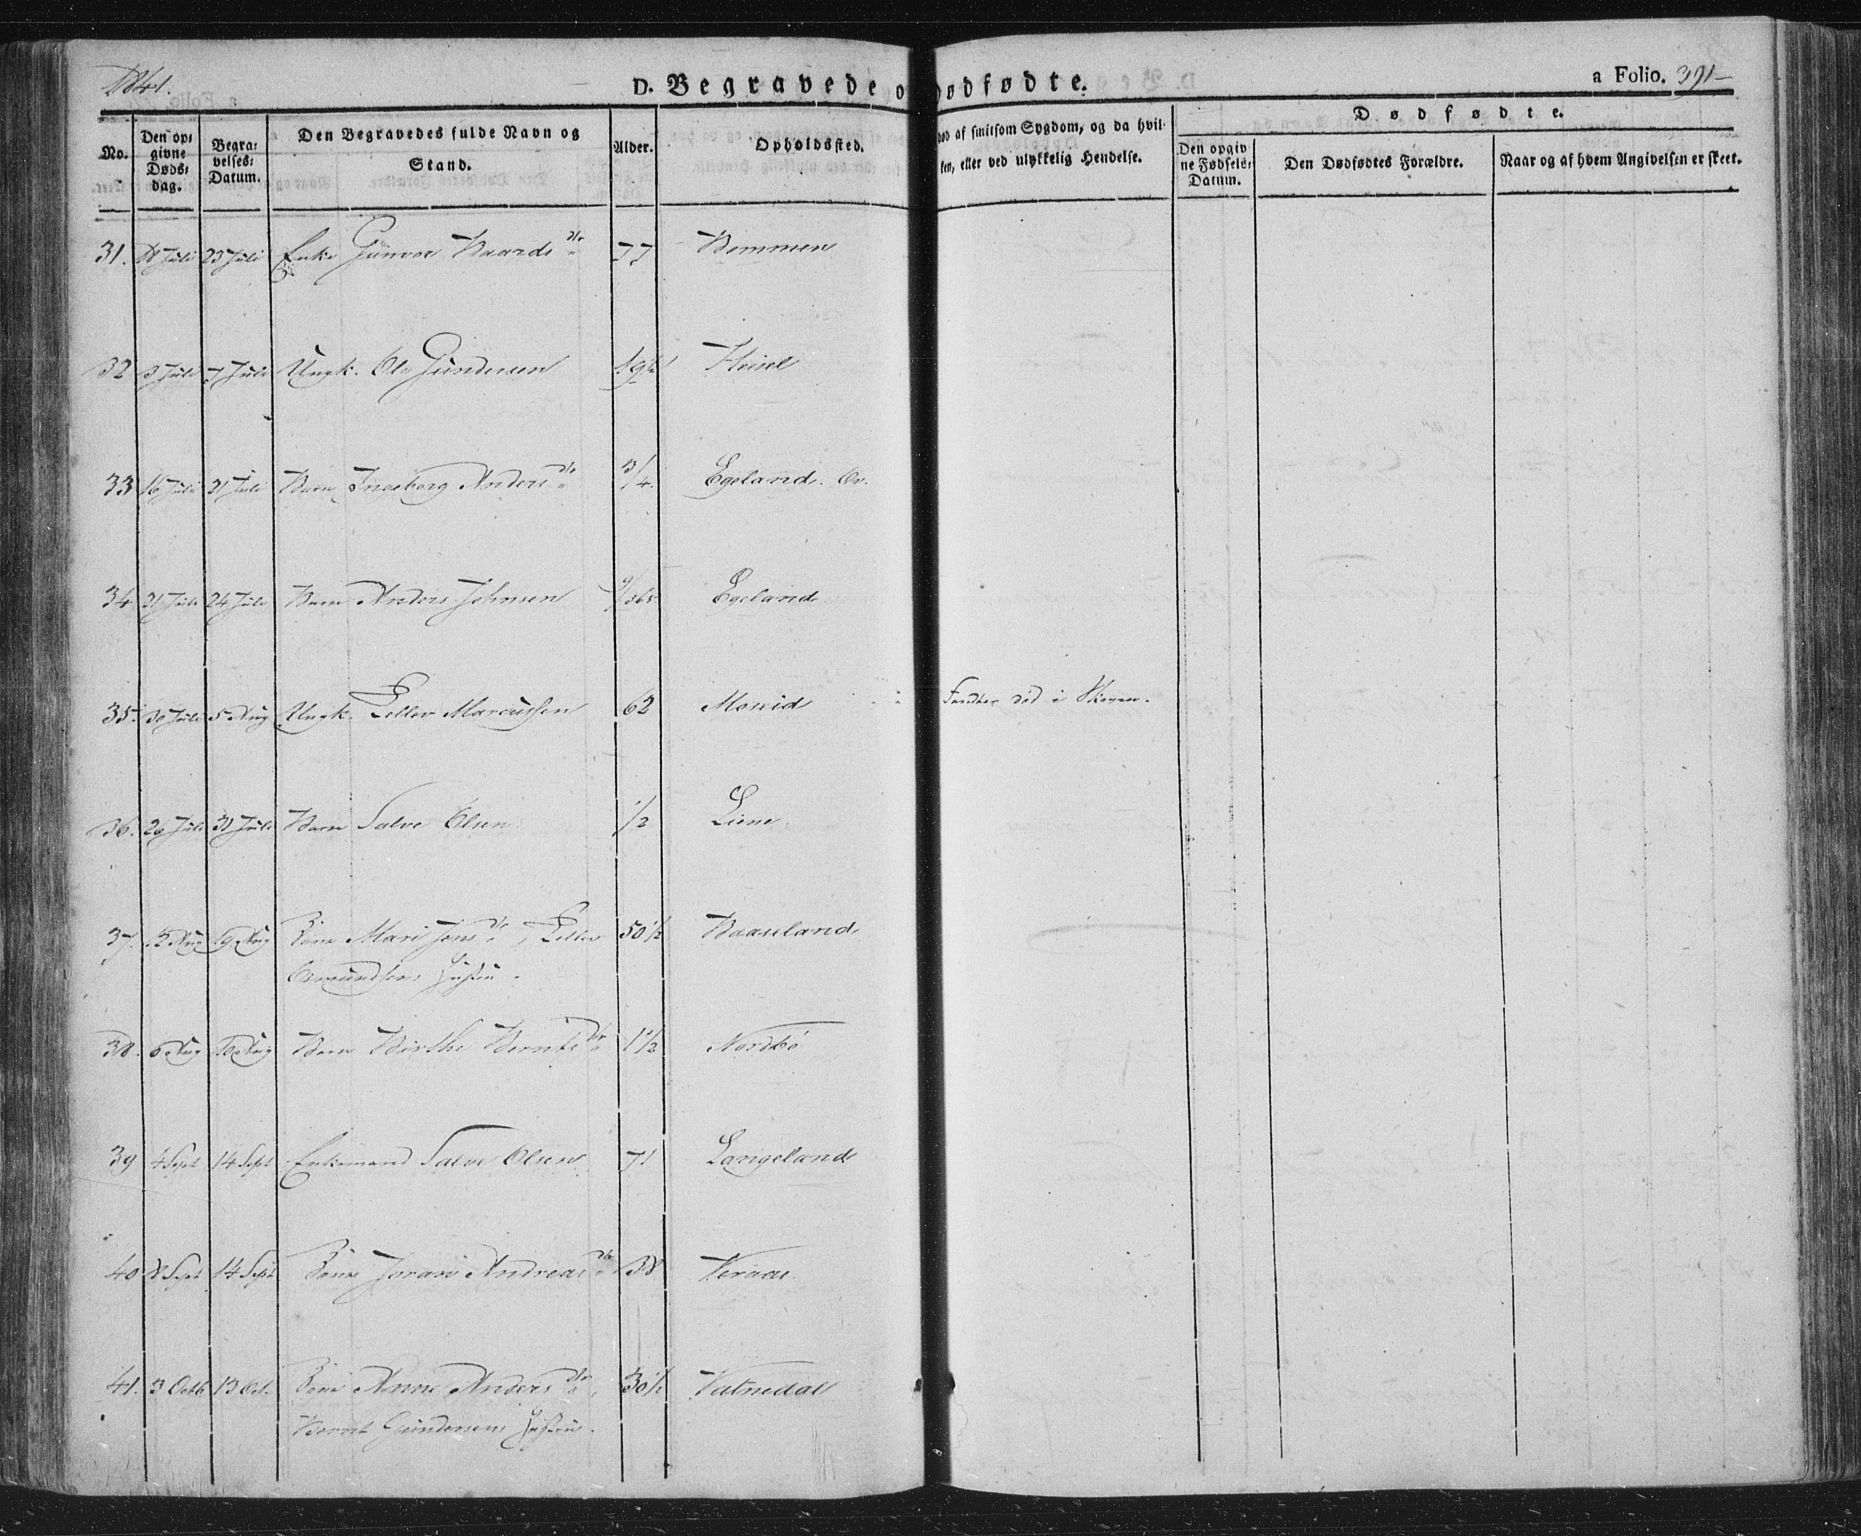 1841.
D. Begravede o
ødfødte.
a Folio. 391
No.
Den opgivne Døds-dag.
Begravelses-Datum.
Den Begravedes fulde Navn og Stand.
Alder.
Opholdssted.
ød af smitsom Sygdom, og da hvil-
ken, eller ved ulykkelig Hendelse.
Dødfødte.
Den opgivne Fødsels-Datum.
Den Dødfødtes Forældre.
Naar og af hvem Angivelsen er skeet.
31. 18 Juli 23 Juli Enke Gunvor Baards dtr 77
32 3 Juli 7 Juli Ungk. Ole Gundersen 19½
33 16 Juli 21 Juli Barn Ingeborg Anders dtr 3/4 Egeland. Ov.
34 21 Juli 24 Juli Barn Anders Johnsen 9/365 Egeland
35. 30 Juli 5 Aug Ungk. Zellev Marcussen 62 Fandtes død i Skoven.
36. 26 Juli 31 Juli Barn Salve Olsen 1/2 Liene
37. 12 Aug 19 Aug Kone Mari Jens dtr, Zellev 50½ Baasland
Osmundsens Hustru.
38. 6 Aug 10 Aug Barn Birthe Bernts dtr 1½ Nordbö
39 4 Sept 14 Sept Enkemand Salve Olsen 71 Langeland
40 8 Sept 14 Sept Kone Joran Andreas dtr 38 Veraas
41. 3 Octb 13 Oct. Kone Anne Anders dtr, 30½ Vatnedal
Bernt Gundersens Hustru.